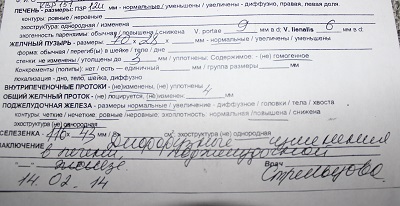 КВР 151
ПЕЧЕНЬ - размеры: ПЗР 120 мм - нормальные / уменьшены / увеличены - диффузно, правая, левая доля.
контуры: ровные / неровные
эхоструктура: однородная / изменена
эхогенность паренхимы обычная / повышена / снижена V. portae 9 мм в d: V. lienalis 6 мм в d.
ЖЕЛЧНЫЙ ПУЗЫРЬ - размеры: мм - нормальные / увеличены / уменьшены
форма: обычная / перегиб(ы) в шейке / теле / дне
стенки: не изменены / утолщены до 3 мм / уплотнены: Содержимое: гомогенное
Конкременты (полипы): нет / есть — единичный мм / группа размеры мм
в шейке, дне, теле, пузыря
ВНУТРИПЕЧЕНОЧНЫЕ ПРОТОКИ - (не)изменены, / (не) уплотнены
ОБЩИЙ ЖЕЛЧНЫЙ ПРОТОК - (не) лоцирован, (не) изменен 4
ПОДЖЕЛУДОЧНАЯ ЖЕЛЕЗА - размеры нормальные / увеличение - диффузное / головки / тела / хвоста
контуры: четкие / нечеткие, ровные / неровные; эхоплотность: нормальная / повышена / снижена
эхоструктура (не) однородная
СЕЛЕЗЕНКА - 110-45 мм / эхоструктура (не) однородная
ЗАКЛЮЧЕНИЕ Диффузные изменения
в печени, поджелудочной
железе Врач
14.02.14